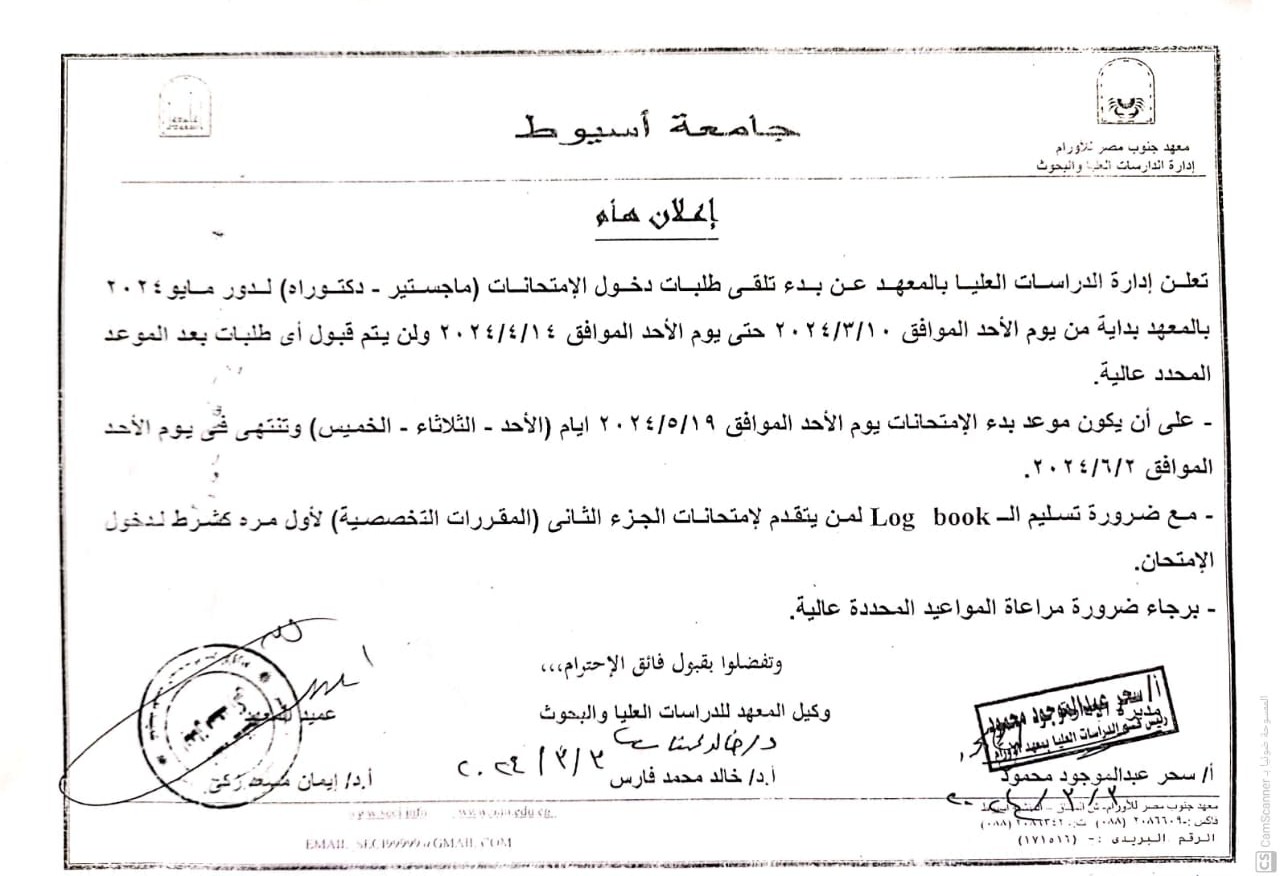 جامعة أسيوط
معهد جنوب مصر للأورام
إدارة الدارسات العليا والبحوث
إعلان هام
تعلن إدارة الدراسات العليا بالمعهد عن بدء تلقى طلبات دخول الإمتحانات (ماجستير - دكتوراه) لدور مايو ٢٠٢٤
بالمعهد بداية من يوم الأحد الموافق ٢٠٢٤/٣/١٠ حتى يوم الأحد الموافق ٢٠٢٤/٤/١٤ ولن يتم قبول أى طلبات بعد الموعد
المحدد عالية.
- على أن يكون موعد بدء الإمتحانات يوم الأحد الموافق ٢٠٢٤/٥/١٩ ايام (الأحد - الثلاثاء - الخميس) وتنتهى فى يوم الأحد
الموافق ٢٠٢٤/٦/٢.
- مع ضرورة تسليم الـ Log book لمن يتقدم لإمتحانات الجزء الثانى (المقررات التخصصية) لأول مره كشرط لدخول
الإمتحان.
- برجاء ضرورة مراعاة المواعيد المحددة عالية.
وتفضلوا بقبول فائق الإحترام،،،
أ/ سحر عبدالموجود محمود
رئيس قسم الدراسات العليا بمعهد الأورام
وكيل المعهد للدراسات العليا والبحوث
عميد المعهد
٢٠٢٤/٣/٣
أ/ سحر عبدالموجود محمود
أ.د/ خالد محمد فارس
أ.د/ إيمان زكى
معهد جنوب مصر للأورام
فاكس: ٢٠٨٦٦٠٩ (٠٨٨) ت: ٢٠٨٦٣٤٢ (٠٨٨)
الرقم البريدى :- (١٧١٥١٦)
EMAIL SECI99999@GMAIL.COM
الممسوحة ضوئيا بـ CamScanner
CS